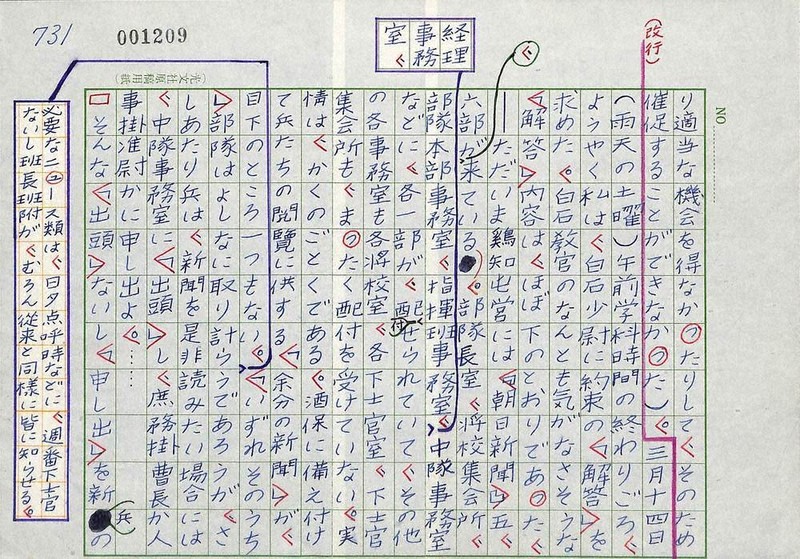 731
001209
(光文社原稿用紙)
NO
(改行)
り適当な機会を得なかったりして、そのため
催促することができなかった)。三月十四日
(雨天の土曜)午前学科時間の終わりごろ、
ようやく私は、白石少尉に約束の「解答」を
求めた。白石教官のなんとも気がなさそうな
「解答」内容は、ほぼ下のとおりであった、
――ただいま鶏知屯営には『朝日新聞』五、
六部が来ている。部隊長室、将校集会所、
経理
事務
室、
部隊本部事務室、指揮班事務室、中隊事務室
などに、各一部が、配付せられていて、その他
の各事務室も各将校室、各下士官室、下士官
集会所も、まったく配付を受けていない。実
情は、かくのごとくである。酒保に備え付け
て兵たちの閲覧に供する「余分の新聞」が、
目下のところ一つもない。「いずれそのうち
」部隊はよしなに取り計らうであろうが、さ
しあたり兵は、新聞を是非読みたい場合には
、中隊事務室に「出頭」し、庶務掛曹長か人
事掛准尉かに申し出よ。……
そんな「出頭」ないし「申し出」を新兵の
必要なニュース類は、日夕点呼時などに、週番下士官
ないし班長班附が、むろん従来と同様に皆に知らせる。